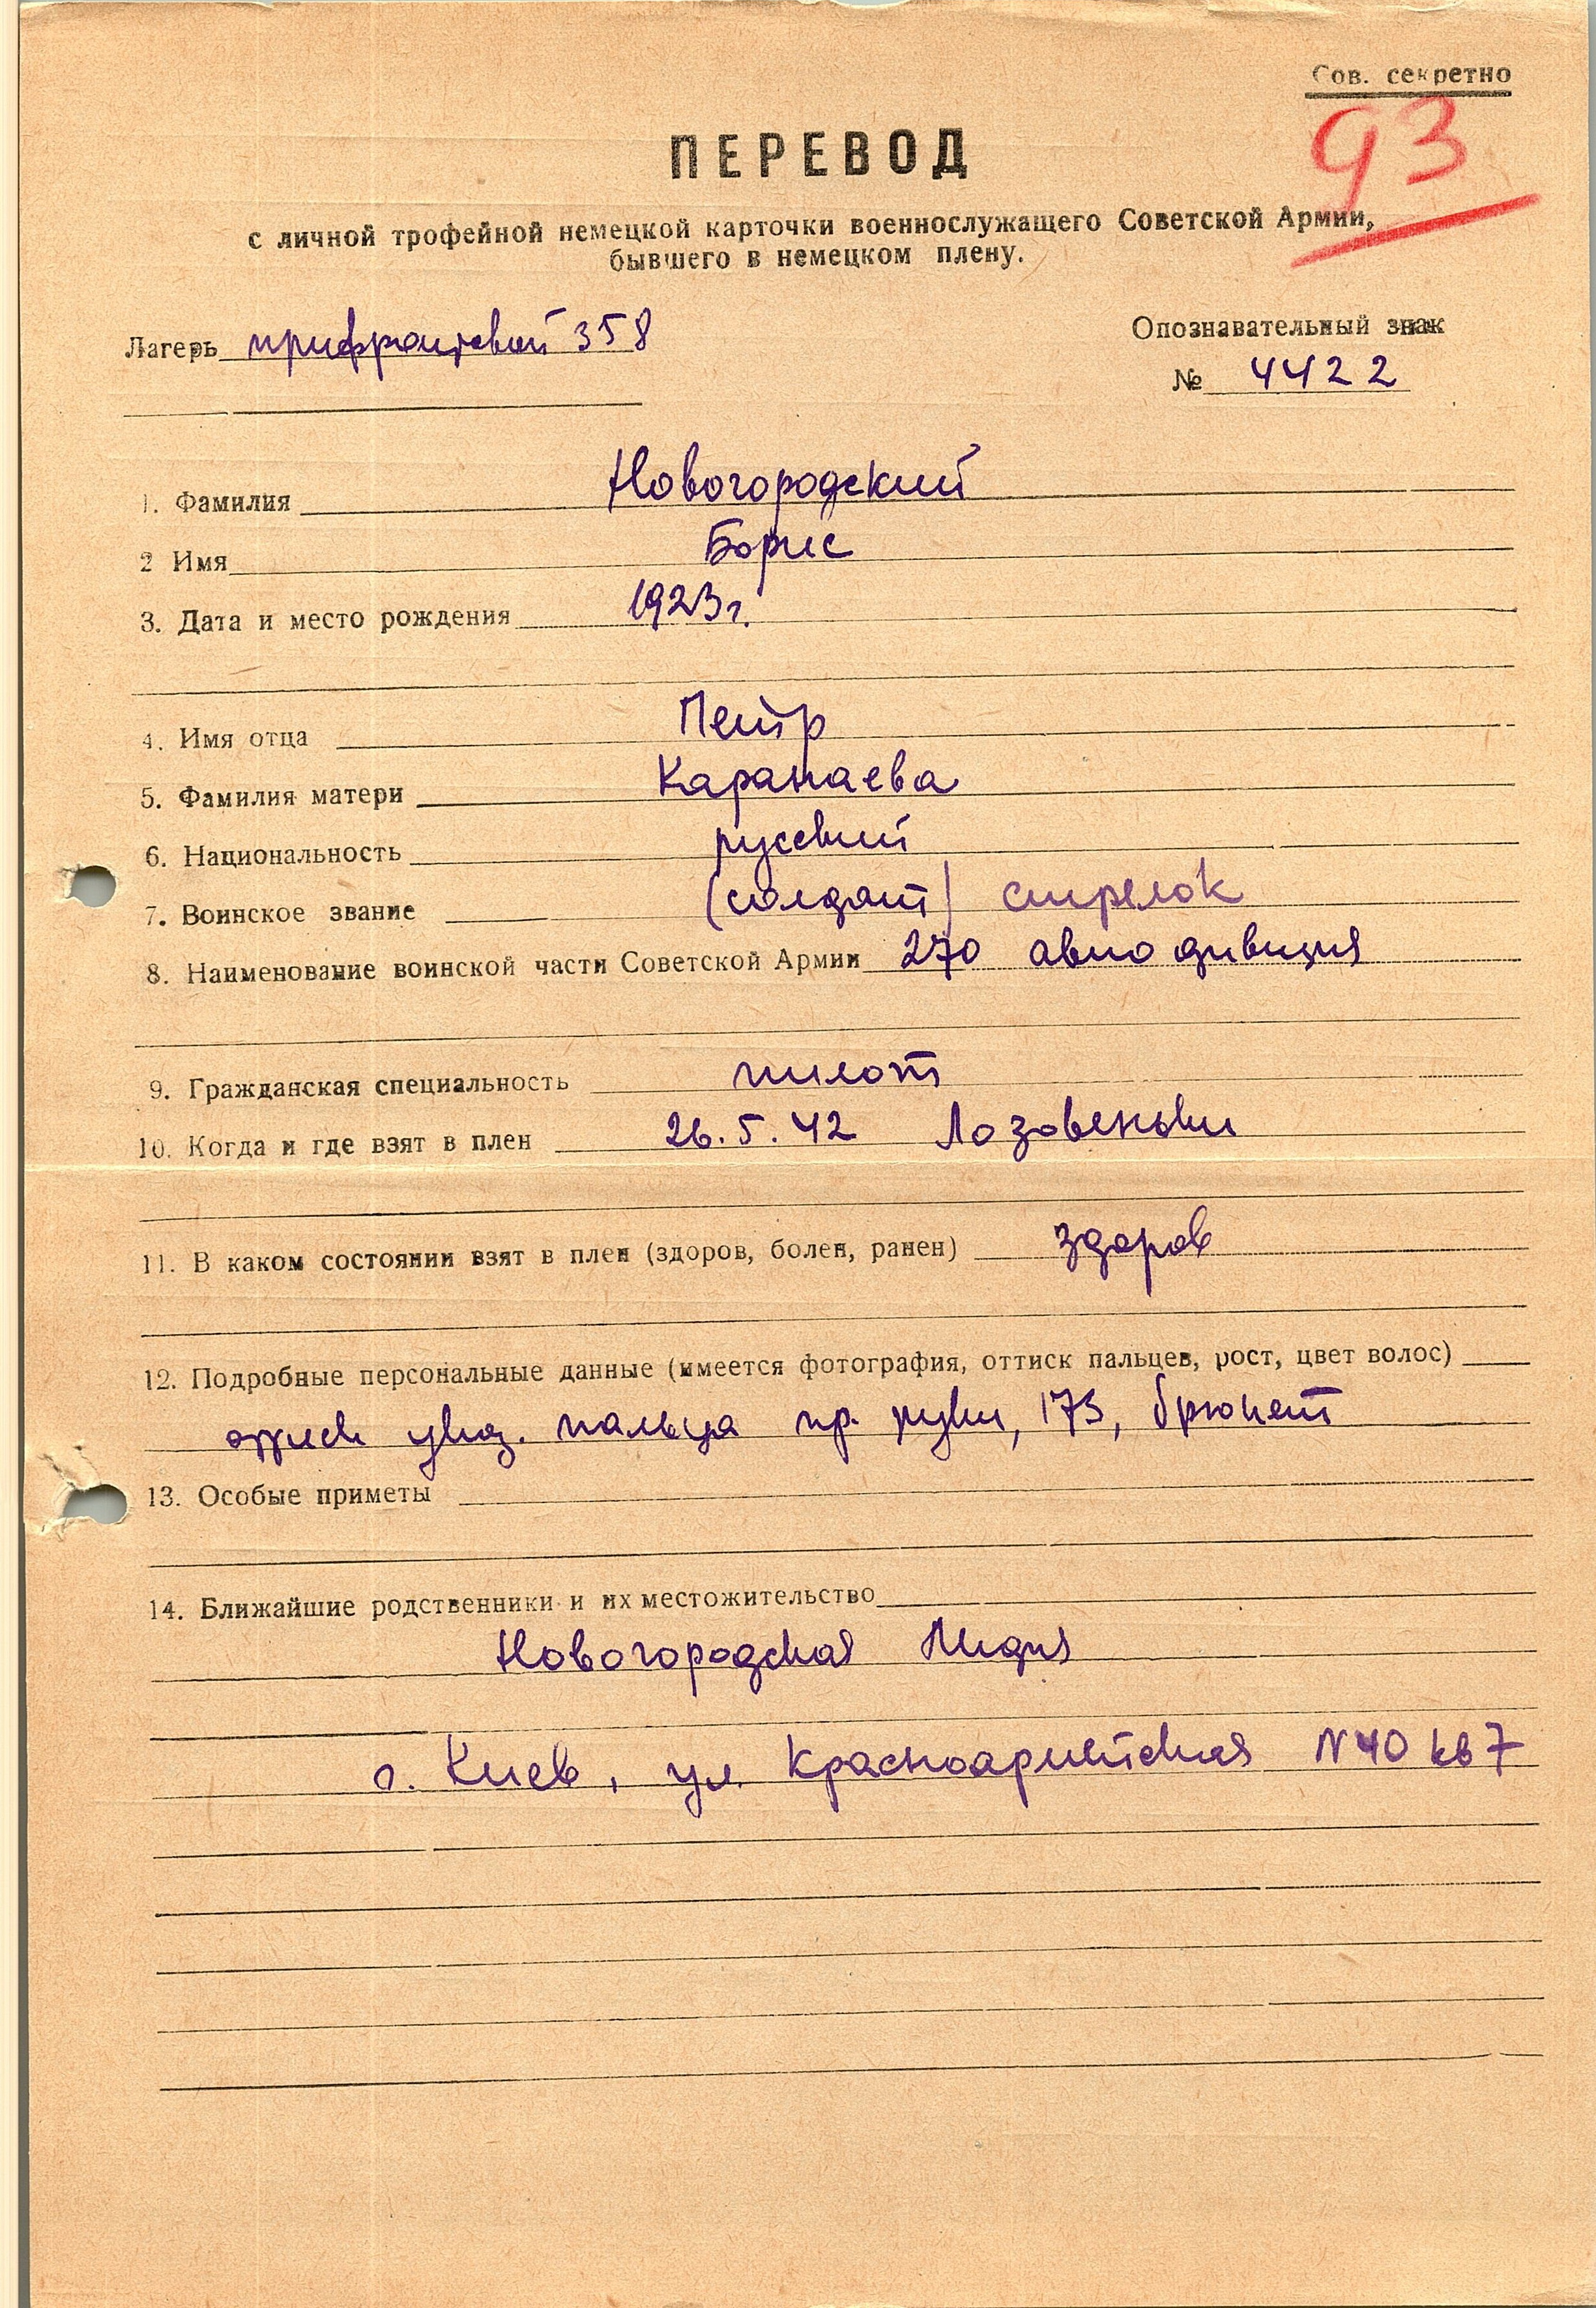 Сов. секретно
93
ПЕРЕВОД
с личной трофейной немецкой карточки военнослужащего Советской Армии,
бывшего в немецком плену.
Лагерь прифронтовой 358
Опознавательный знак
№ 4422
1. Фамилия Новогородский
2 Имя Борис
3. Дата и место рождения 1923г.
4. Имя отца Петр
5. Фамилия матери Каранаева
6. Национальность русский
7. Воинское звание (солдат) стрелок
8. Наименование воинской части Советской Армии 270 авио дивизия
9. Гражданская специальность пилот
10. Когда и где взят в плен 26.5.42 Лозовеньки
11. В каком состоянии взят в плен (здоров, болен, ранен) здоров
12. Подробные персональные данные (имеется фотография, оттиск пальцев, рост, цвет волос)
указ. пальца пр. руки, 173, брюнет
13. Особые приметы
14. Ближайшие родственники и их местожительство
Новогородская Лидия
г. Киев, ул. Красноармейская N40 кв 7